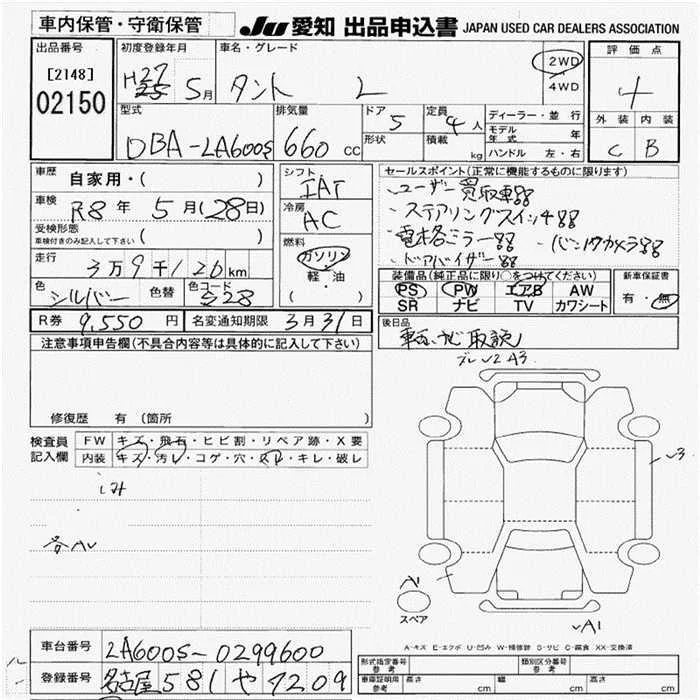 車内保管・守衛保管
JU 愛知 出品申込書 JAPAN USED CAR DEALERS ASSOCIATION
出品番号
[2148]
02150
初度登録年月
H27 5月
車名・グレード
タント L
2WD
4WD
評価点
4
外装 内装
C B
型式
DBA-LA600S
排気量
660 CC
ドア
5
形状
定員
4人
積載
kg
ディーラー・並行
モデル年式 年
ハンドル 左・右
車歴
自家用・( )
車検
R8年 5月(28日)
受検形態
車検付きのみ記入して下さい ( )
走行
3万9千126km
色
シルバー
色替
色コード
S28
シフト
IAT
冷房
AC
燃料
ガソリン
軽・油
( )
セールスポイント(正常に機能するものに限ります)
・ユーザー買取車
・ステアリングスイッチ
・電格ミラー ・バックカメラ
・ドアバイザー
装備品(純正品に限り○をつけてください)
PS PW エアB AW
SR ナビ TV カワシート
新車保証書
有・無
R券 9,550円
名変通知期限 3月31日
後日品
車検、ナビ取説
注意事項申告欄(不具合内容等は具体的に記入して下さい)
修復歴 有(箇所
検査員
記入欄
FW キズ・飛石・ヒビ割・リペア跡・X要
内装 キズ・汚レ・コゲ・穴・スレ・キレ・破レ
シミ
各AU
U2 A3
U3
A1
スペア
A1
A-キズ E-エクボ U-凹み W-補修跡 S-サビ C-腐食 XX-交換済
車台番号 LA600S-0299600
登録番号 名古屋 581 や 7209
形式指定番号
参考
類別区分番号
参考
車庫証明用
参考
長さ cm
幅 cm
高さ cm